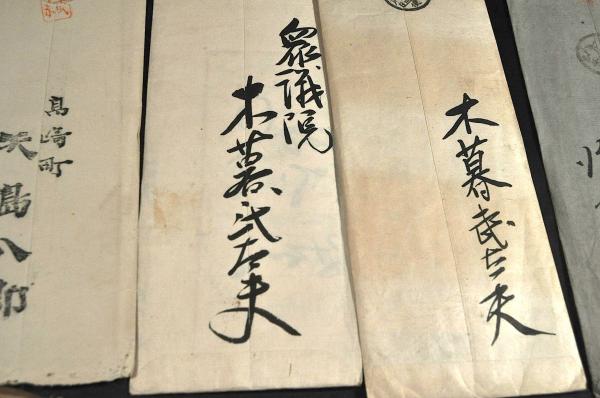 木暮武太夫
衆議院
木暮武太夫
高崎町
矢島八郎